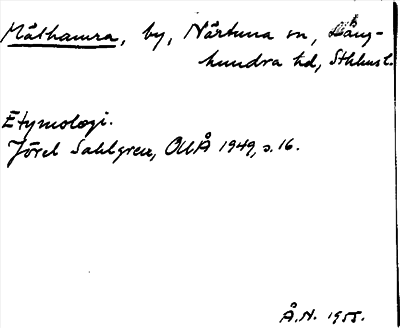 Målhamra, by, Närtuna sn, Lång-
hundra hd, Sthlms l.
Etymologi.
Jöran Sahlgren, OUÅ 1949, s. 16.
Å.N. 1955.